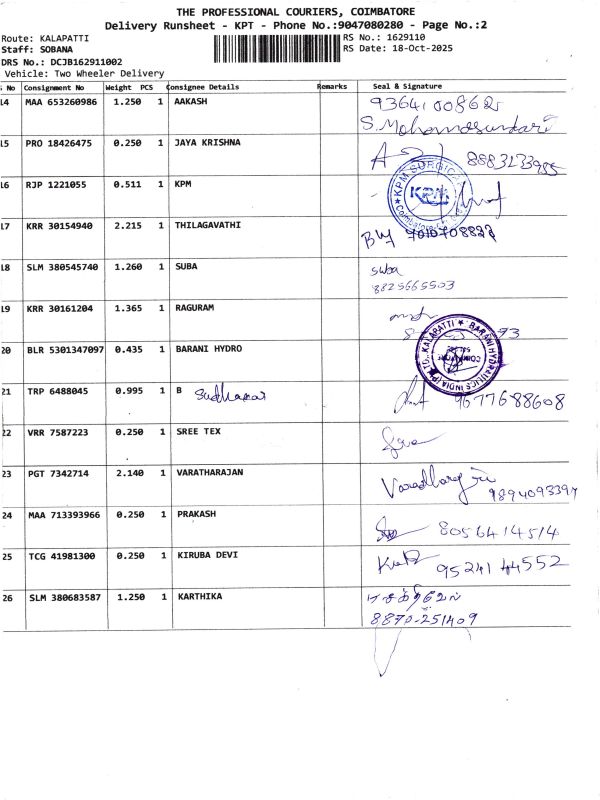 THE PROFESSIONAL COURIERS, COIMBATORE
Delivery Runsheet - KPT - Phone No.:9047080280 - Page No.:2
Route: KALAPATTI RS No.: 1629110
Staff: SOBANA RS Date: 18-Oct-2025
DRS No.: DCJB162911002
Vehicle: Two Wheeler Delivery
No Consignment No Weight PCS Consignee Details Remarks Seal & Signature
14 MAA 653260986 1.250 1 AAKASH 9364100862
S. Mohanasundari
15 PRO 18426475 0.250 1 JAYA KRISHNA 8883133985
16 RJP 1221055 0.511 1 KPM KPM SURGICAL
KPM
Coimbatore
17 KRR 30154940 2.215 1 THILAGAVATHI
18 SLM 380545740 1.260 1 SUBA suba
8825665503
19 KRR 30161204 1.365 1 RAGURAM
20 BLR 5301347097 0.435 1 BARANI HYDRO BARANI HYDRAULICS INDIA (P) LTD., KALAPATTI
21 TRP 6488045 0.995 1 B Sudhakar 9677688608
22 VRR 7587223 0.250 1 SREE TEX
23 PGT 7342714 2.140 1 VARATHARAJAN
9894093397
24 MAA 713393966 0.250 1 PRAKASH 8056414514
25 TCG 41981300 0.250 1 KIRUBA DEVI 9524144552
26 SLM 380683587 1.250 1 KARTHIKA
8870-251409